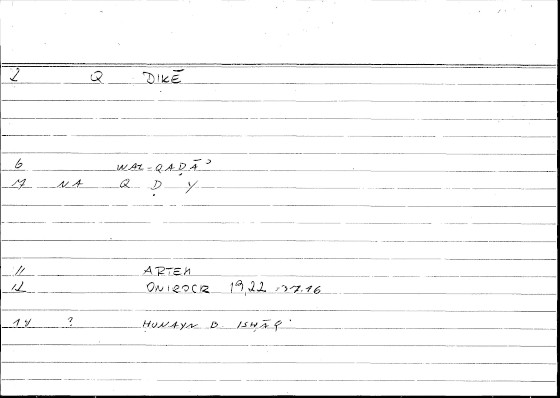 2 Q DIKĒ
6 WAL-QAḌĀʾ
7 NA Q Ḍ Y
11 ARTEM
12 ONIROCR 19,22 :37.16
14 ? ḤUNAYN B. ISḤĀQ